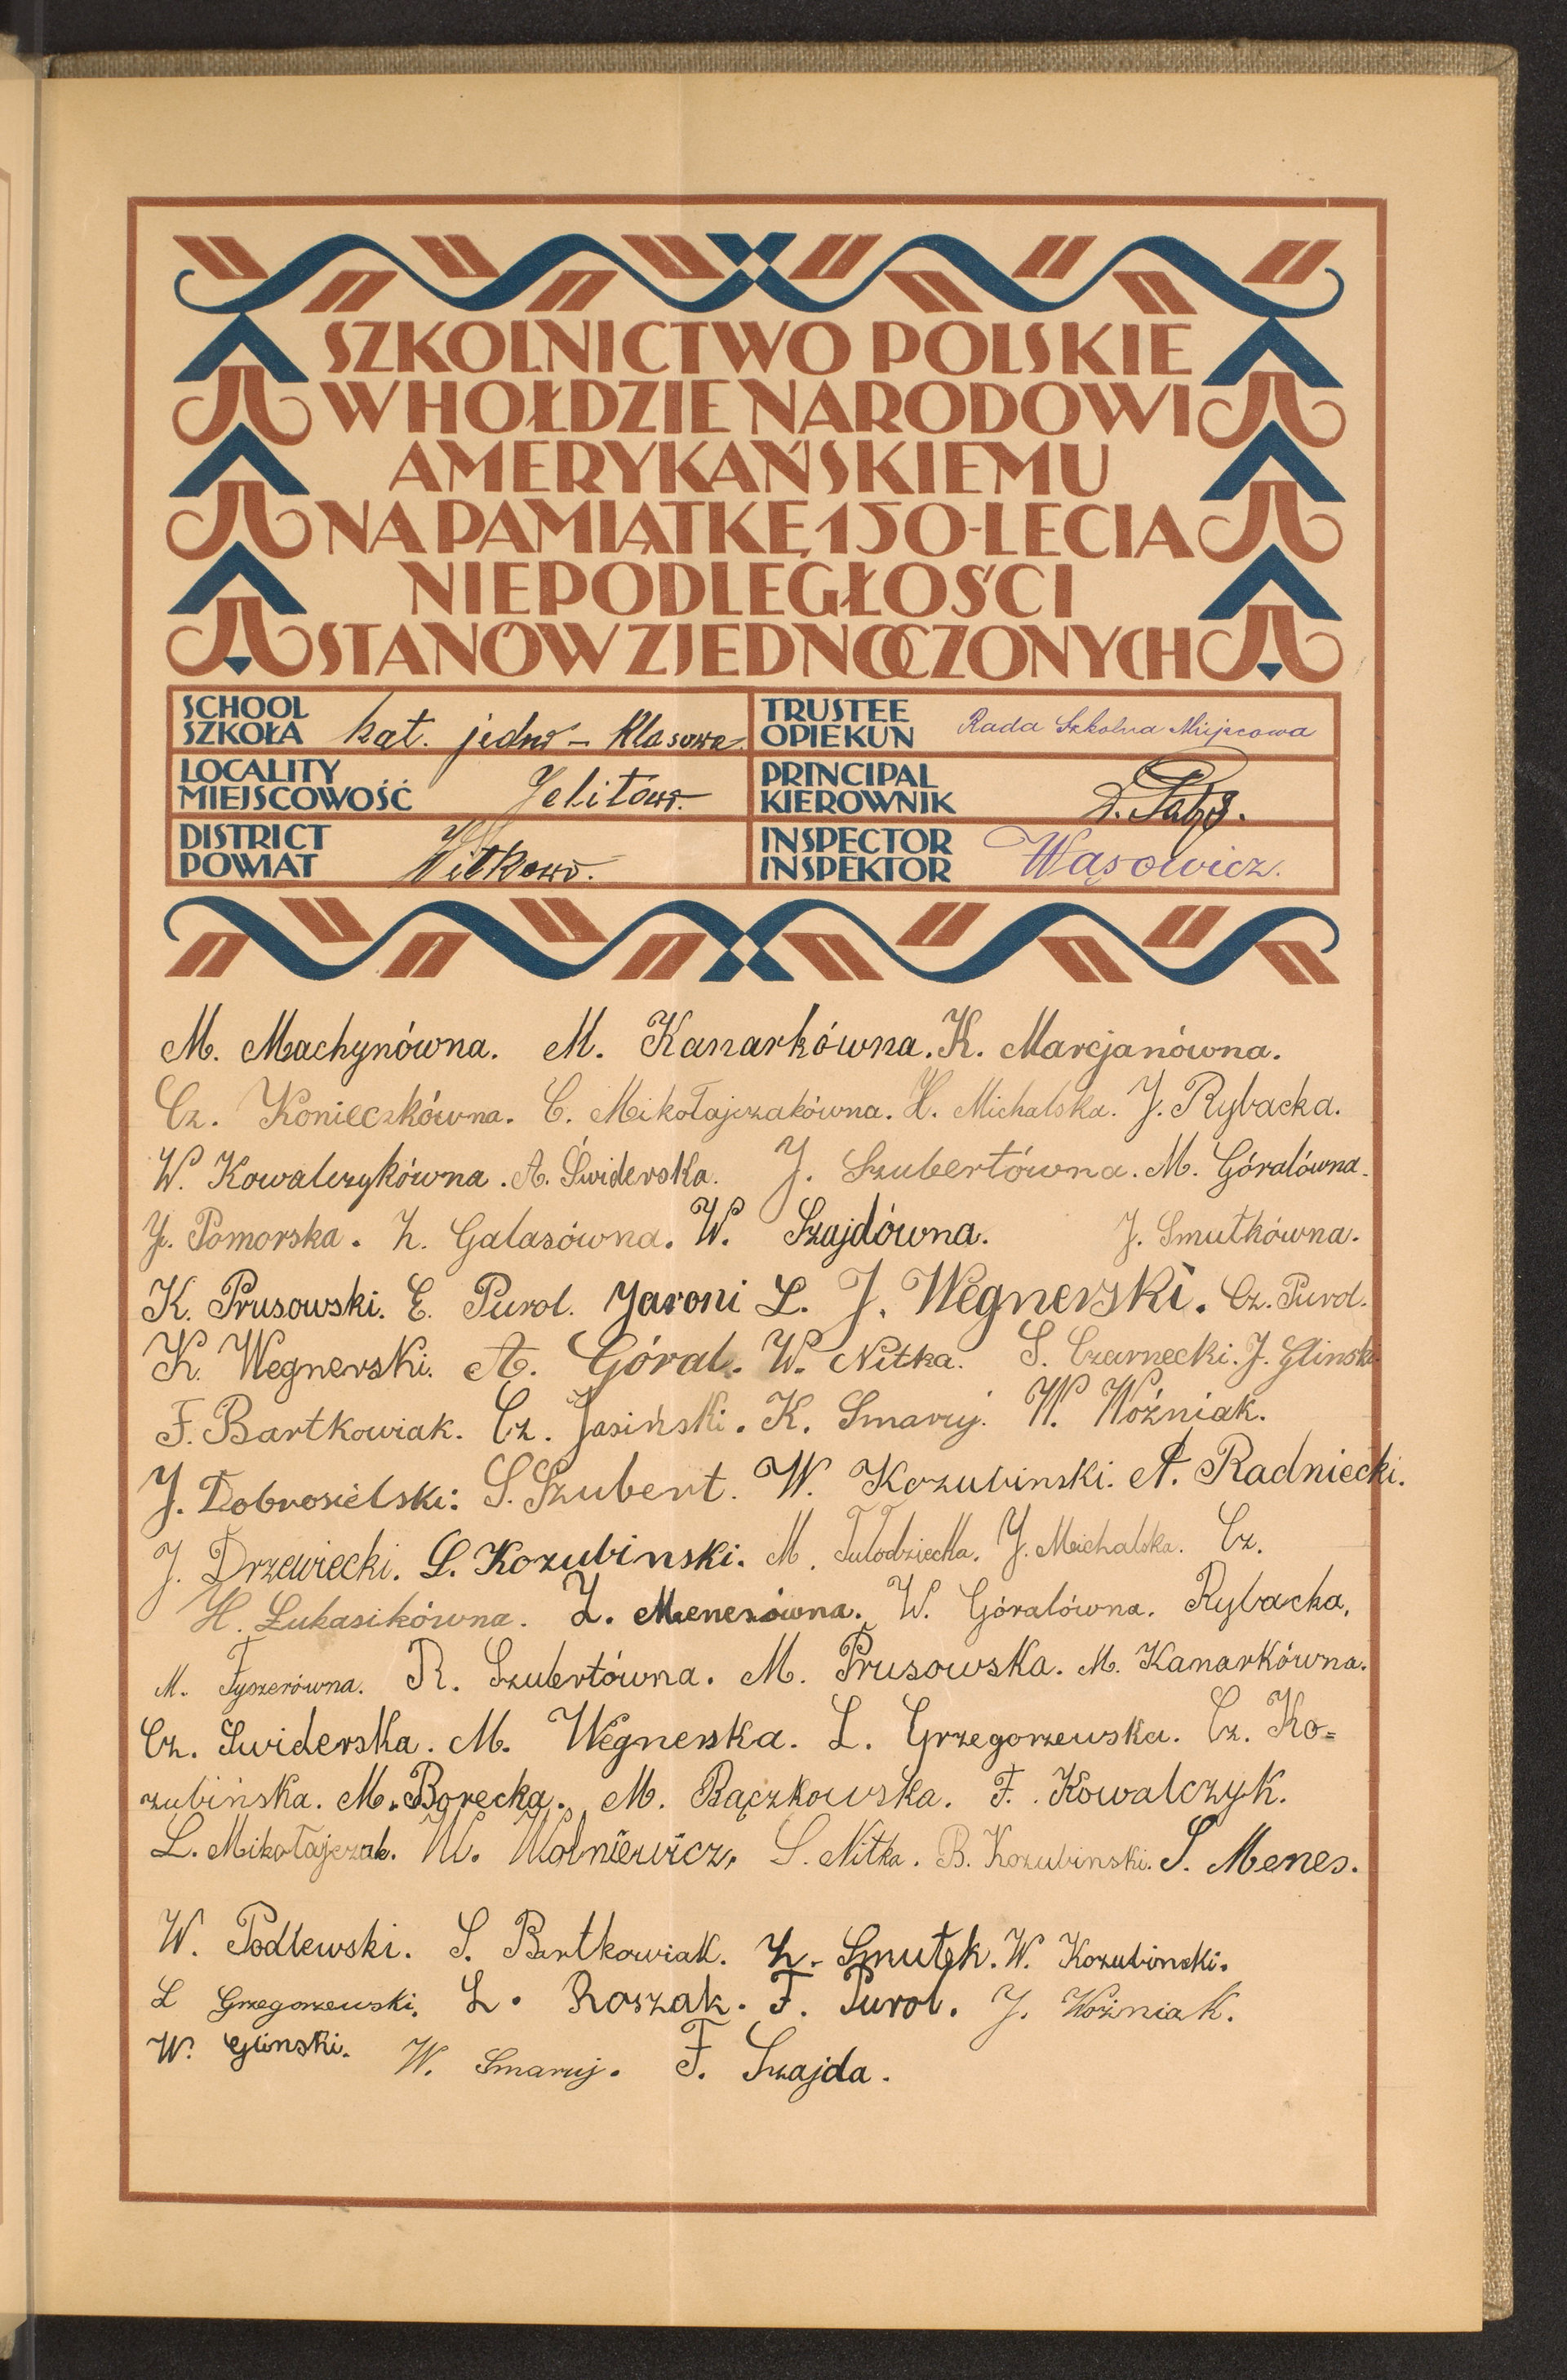 SZKOLNICTWO POLSKIE
W HOŁDZIE NARODOWI
AMERYKAŃSKIEMU
NA PAMIĄTKĘ 150-LECIA
NIEPODLEGŁOŚCI
STANÓW ZJEDNOCZONYCH
SCHOOL
SZKOŁA kat. jedno-klasowa
TRUSTEE
OPIEKUN Rada Szkolna Miejscowa
LOCALITY
MIEJSCOWOŚĆ Jelitowo.
PRINCIPAL
KIEROWNIK
DISTRICT
POWIAT Witkowo.
INSPECTOR
INSPEKTOR Wąsowicz.
M. Machynówna. M. Kanarkówna. K. Marcjanówna.
Cz. Konieczkówna. C. Mikołajczakówna. H. Michalska. J. Rybacka.
W. Kowalczykówna. A. Świderska. J. Szubertówna. M. Góralówna.
J. Pomorska. Z. Galasówna. W. Szajdówna. J. Smutkówna.
K. Prusowski. E. Purol. Jaroni L. J. Wegnerski. Cz. Purol.
K. Wegnerski. A. Góral. W. Nitka. S. Czarnecki. J. Glinski
F. Bartkowiak. Cz. Jasiński. K. Smaruj. W. Woźniak.
J. Dobrosielski: S. Szubert. W. Kozubinski. A. Radniecki.
J. Drzewiecki. L. Kozubinski. M. Tułodziecka. J. Michalska. Cz.
H. Łukasikówna. Z. Menesówna. W. Góralówna. Rybacka.
M. Fyszerówna. R. Szubertówna. M. Prusowska. M. Kanarkówna.
Cz. Swiderska. M. Wegnerska. L. Grzegorzewska. Cz. Ko=
zubińska. M. Borecka. M. Bączkowska. F. Kowalczyk.
L. Mikołajczak. W. Wolniewicz. S. Nitka. B. Kozubinski. S. Menes.
W. Podlewski. S. Bartkowiak. Z. Smutek. W. Kozubinski.
L Grzegorzewski. L. Roszak. F. Purol. J. Woźniak.
W. Glinski. W. Smaruj. F. Szajda.